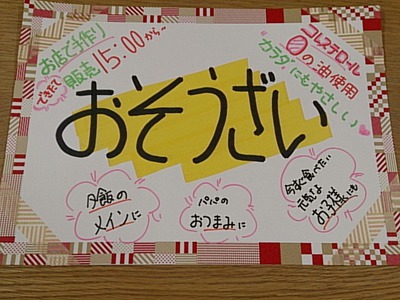 お店で手作り
できたて販売
15:00から〜
コレステロール
0の油使用
"カラダ"にもやさしい
おそうざい
夕飯の
メインに
パパの
おつまみに
今すぐ食べたい
元気な
お子様にも